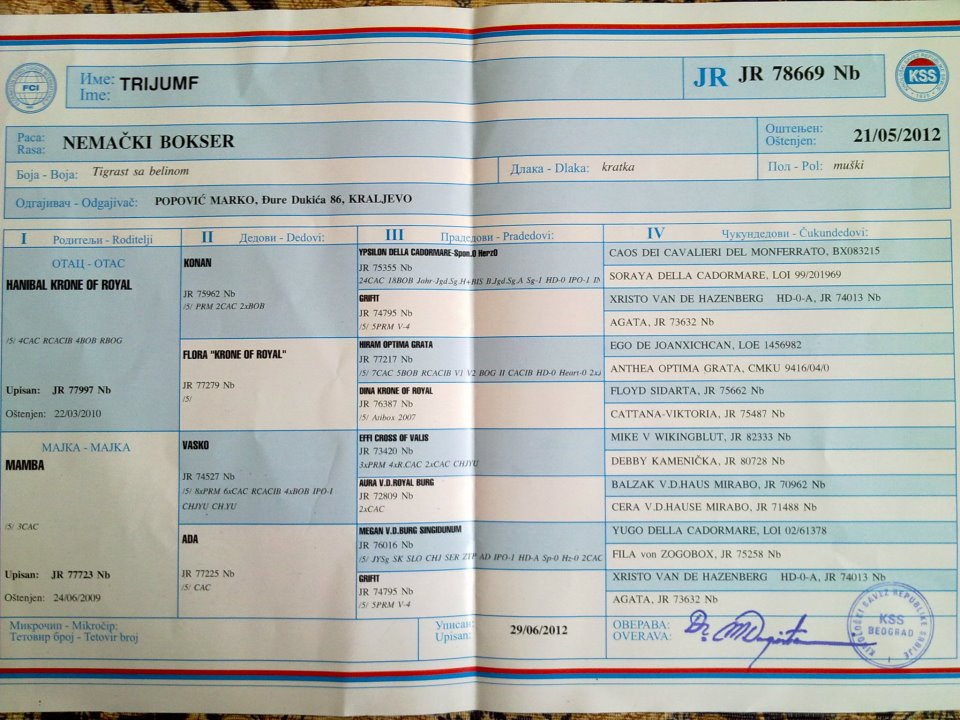 FCI
Име:
Ime:
TRIJUMF
JR JR 78669 Nb
KSS
Раса:
Rasa:
NEMAČKI BOKSER
Оштењен:
Oštenjen:
21/05/2012
Боја - Boja: Tigrast sa belinom
Длака - Dlaka: kratka
Пол - Pol: muški
Одгајивач - Odgajivač: POPOVIĆ MARKO, Đure Dukića 86, KRALJEVO
I Родитељи - Roditelji
II Дедови - Dedovi:
III Прадедови - Pradedovi:
IV Чукундедови - Čukundedovi:
ОТАЦ - OTAC
HANIBAL KRONE OF ROYAL
/5/ 4CAC RCACIB 4BOB RBOG
Upisan: JR 77997 Nb
Oštenjen: 22/03/2010
МАЈКА - MAJKA
MAMBA
/5/ 3CAC
Upisan: JR 77723 Nb
Oštenjen: 24/06/2009
KONAN
JR 75962 Nb
/5/ PRM 2CAC 2xBOB
FLORA "KRONE OF ROYAL"
JR 77279 Nb
/5/
VASKO
JR 74527 Nb
/5/ 8xPRM 6xCAC RCACIB 4xBOB IPO-I
CHJYU CH.YU
ADA
JR 77225 Nb
/5/ CAC
YPSILON DELLA CADORMARE-Spon.O HerzO
JR 75355 Nb
24CAC 18BOB Jahr-Jgd.Sg.H+BIS B.Jgd.Sg.A Sg-1 HD-0 IPO-1
GRIFIT
JR 74795 Nb
/5/ 5PRM V-4
HIRAM OPTIMA GRATA
JR 77217 Nb
/5/ 7CAC 5BOB RCACIB V1 V2 BOG II CACIB HD-0 Heart-0
DINA KRONE OF ROYAL
JR 76387 Nb
/5/ Atibox 2007
EFFI CROSS OF VALIS
JR 73420 Nb
3xPRM 4xR.CAC 2xCAC CHJYU
AURA V.D.ROYAL BURG
JR 72809 Nb
2xCAC
MEGAN V.D.BURG SINGIDUNUM
JR 76016 Nb
/5/ JYSg SK SLO CHJ SER ZTP AD IPO-1 HD-A Sp-0 Hz-0 2CAC
GRIFIT
JR 74795 Nb
/5/ 5PRM V-4
CAOS DEI CAVALIERI DEL MONFERRATO, BX083215
SORAYA DELLA CADORMARE, LOI 99/201969
XRISTO VAN DE HAZENBERG HD-0-A, JR 74013 Nb
AGATA, JR 73632 Nb
EGO DE JOANXICHCAN, LOE 1456982
ANTHEA OPTIMA GRATA, CMKU 9416/04/0
FLOYD SIDARTA, JR 75662 Nb
CATTANA-VIKTORIA, JR 75487 Nb
MIKE V WIKINGBLUT, JR 82333 Nb
DEBBY KAMENIČKA, JR 80728 Nb
BALZAK V.D.HAUS MIRABO, JR 70962 Nb
CERA V.D.HAUSE MIRABO, JR 71488 Nb
YUGO DELLA CADORMARE, LOI 02/61378
FILA von ZOGOBOX, JR 75258 Nb
XRISTO VAN DE HAZENBERG HD-0-A, JR 74013 Nb
AGATA, JR 73632 Nb
Микрочип - Mikročip:
Тетовир број - Tetovir broj
Уписан:
Upisan:
29/06/2012
ОВЕРАВА:
OVERAVA:
KINOLOŠKI SAVEZ REPUBLIKE SRBIJE
KSS
BEOGRAD
1